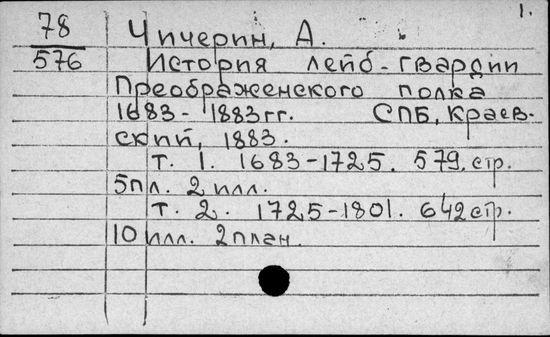 1.
78
576
Чичерин, А.
История лейб-гвардии
Преображенского полка
1683-1883гг. СПБ, Краев-
ский, 1883.
т. 1. 1683-1725. 579.стр.
5пл. 2илл.
т. 2. 1725-1801. 642стр.
10илл. 2план.